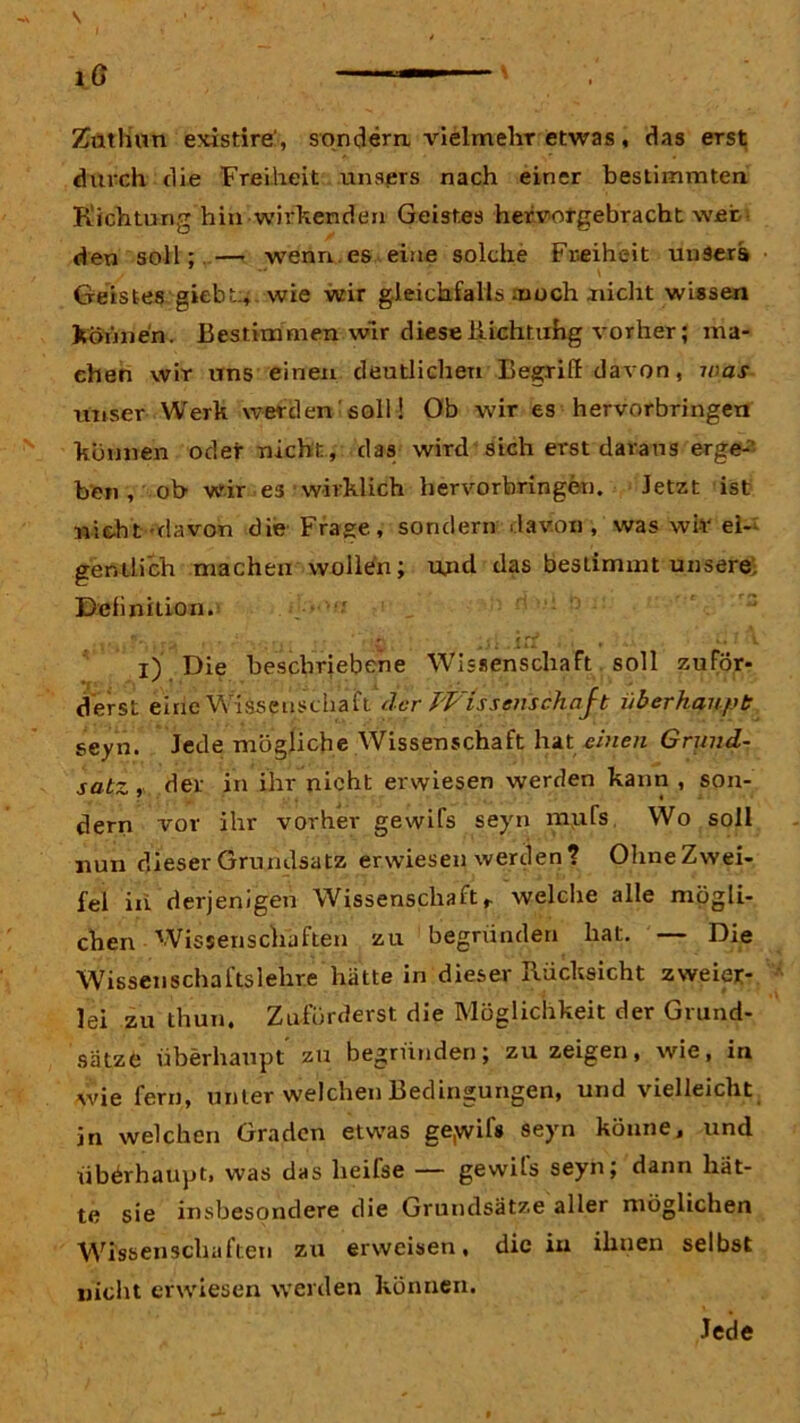 16
Zuthun existire, sondern vielmehr etwas, das erst
durch die Freiheit unsers nach einer bestimmten
Richtung hin wirkenden Geistes hervorgebracht wer
den soll; — wenn es eine solche Freiheit unsers
Geistes giebt, wie wir gleichfalls noch nicht wissen
können. Bestimmen wir diese Richtung vorher; ma-
chen wir uns einen deutlichen Begriff davon, was
unser Werk werden soll! Ob wir es hervorbringen
können oder nicht, das wird sich erst daraus erge-
ben, ob wir es wirklich hervorbringen. Jetzt ist
nicht davon die Frage, sondern davon, was wir ei-
gentlich machen wollen; und das bestimmt unsere
Definition.
1) Die beschriebene Wissenschaft soll zuför-
derst eine Wissenschaft der Wissenschaft überhaupt
seyn. Jede mögliche Wissenschaft hat einen Grund-
satz, der in ihr nicht erwiesen werden kann, son-
dern vor ihr vorher gewifs seyn mufs. Wo soll
nun dieser Grundsatz erwiesen werden? Ohne Zwei-
fel in derjenigen Wissenschaft, welche alle mögli-
chen Wissenschaften zu begründen hat. — Die
Wissenschaftslehre hätte in dieser Rücksicht zweier-
lei zu thun. Zuförderst die Möglichkeit der Grund-
sätze überhaupt zu begründen; zu zeigen, wie, in
wie fern, unter welchen Bedingungen, und vielleicht
in welchen Graden etwas gewifs seyn könne, und
überhaupt, was das heifse — gewifs seyn; dann hät-
te sie insbesondere die Grundsätze aller möglichen
Wissenschaften zu erweisen, die in ihnen selbst
nicht erwiesen werden können.
Jede